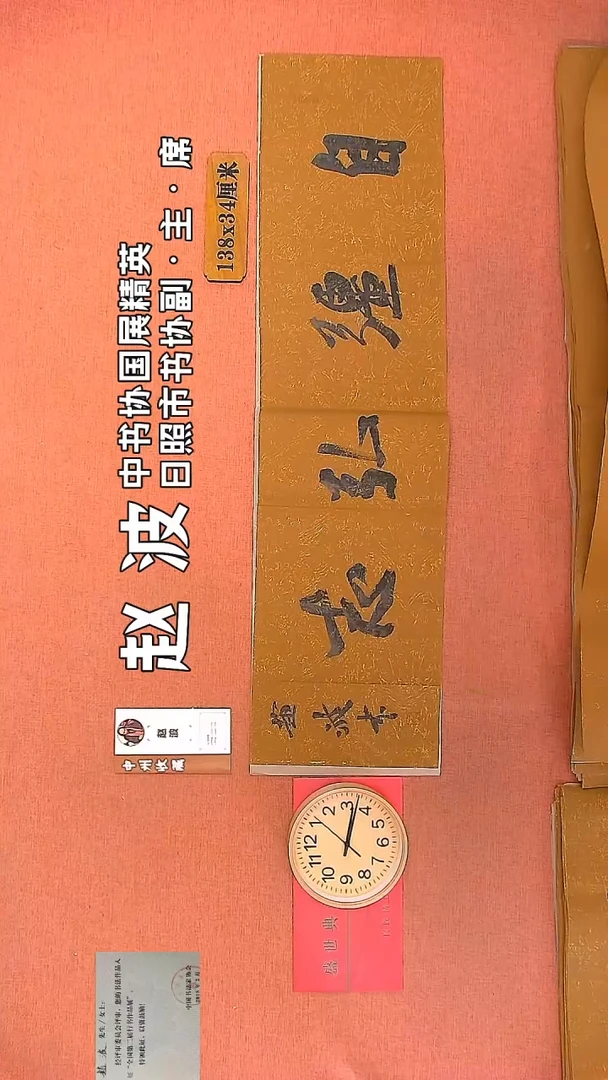 赵波
中书协国展精英
日照市书协副·主·席
138x34厘米
自彊弘
波书
赵波
中州收藏
盛世典
12
1
2
3
4
5
6
7
8
9
10
11
赵波 先生/女士:
经评审委员会评审，您的书法作品入
展“全国第二届行书作品展”，
特颁此证，以资鼓励!
中国书法家协会